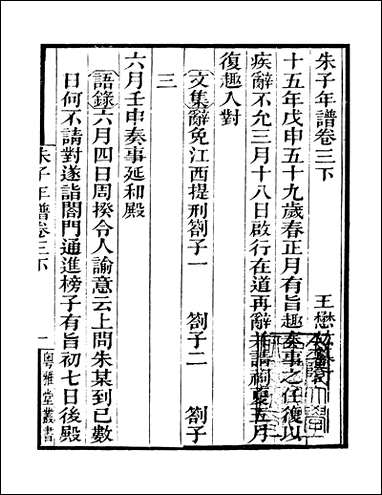 朱子年譜卷三下
王懋竑
十五年戊申五十九歲春正月有旨趣奏事之任復以
疾辭不允三月十八日啟行在道再辭并請祠夏五月
復趣入對
文集辭免江西提刑劄子一 劄子二 劄子
三
六月壬申奏事延和殿
語錄六月四日周揆令人諭意云上問朱某到已數
日何不請對遂詣閤門通進榜子有旨初七日後殿
朱子年譜卷三下
一
粵雅堂叢書